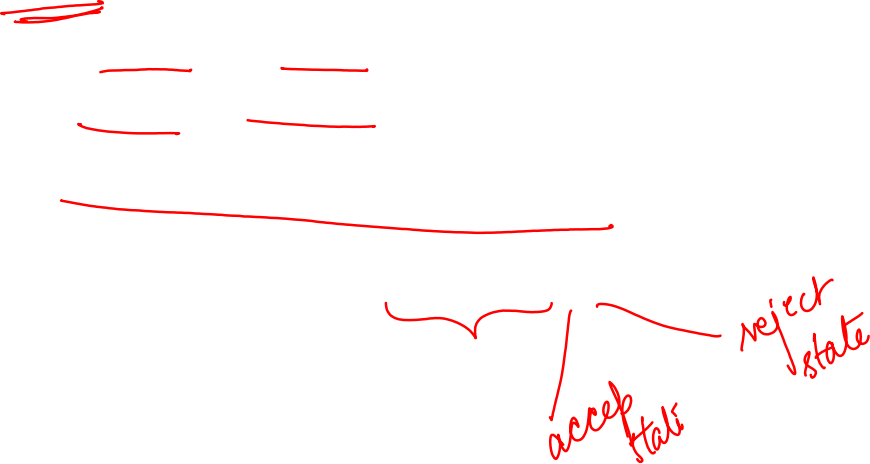 reject
state
accep
stati